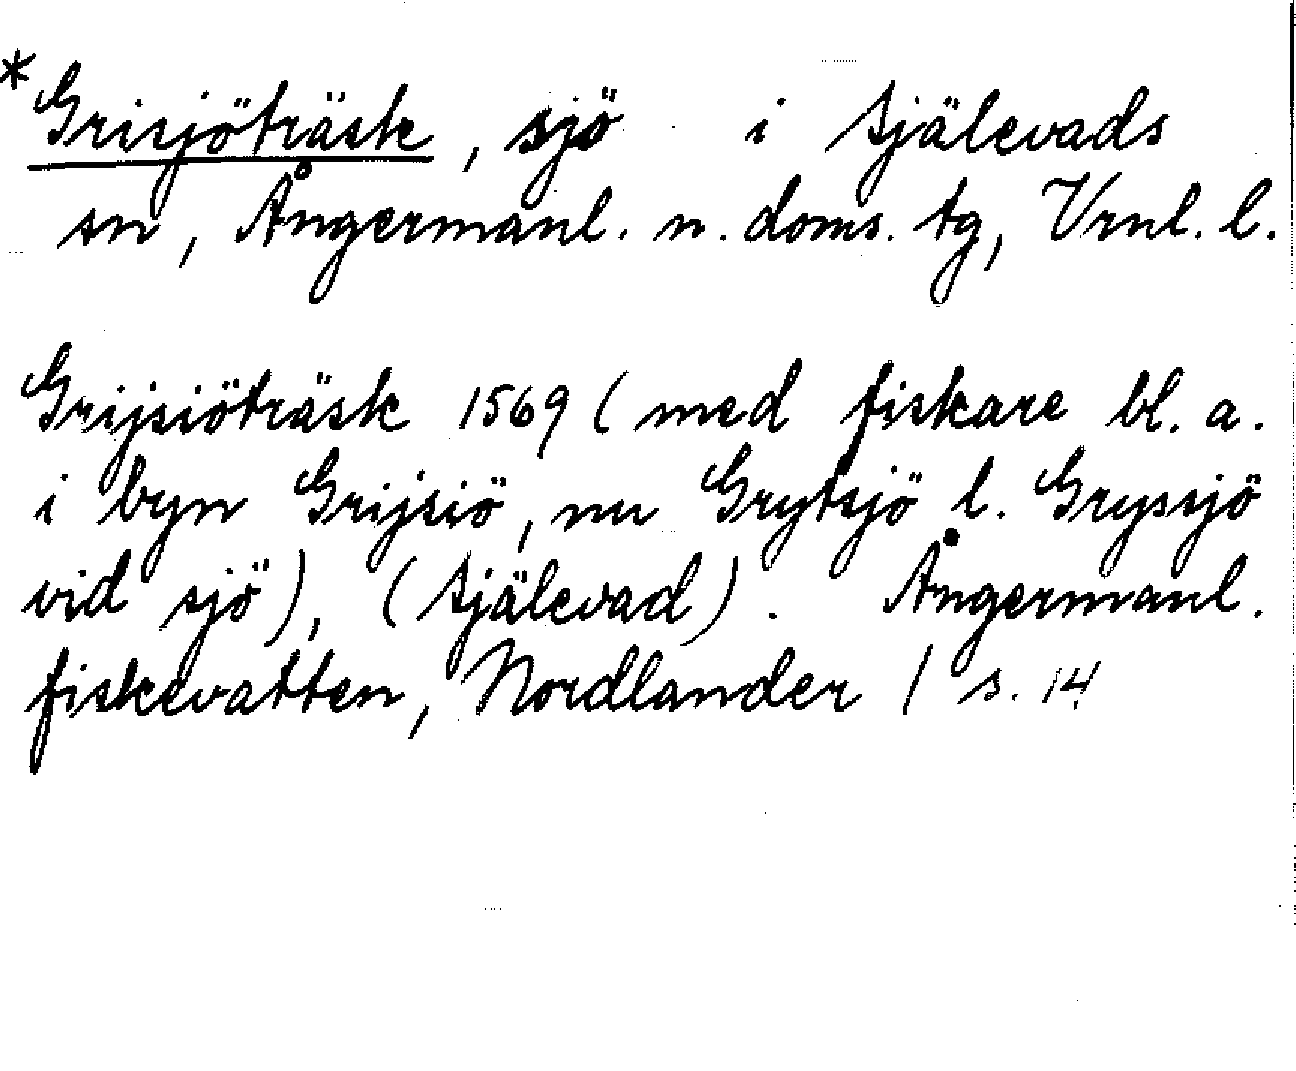 *Grisjöträsk, sjö i Själevads
sn, Ångermanl. n. doms. tg, Vrnl. l.
Grijsiöträsk 1569 (med fiskare bl. a.
i byn Grijsiö, nu Grytsjö l. Gryssjö
vid sjö), (Själevad). Ångermanl.
fiskevatten, Nordlander / s. 14